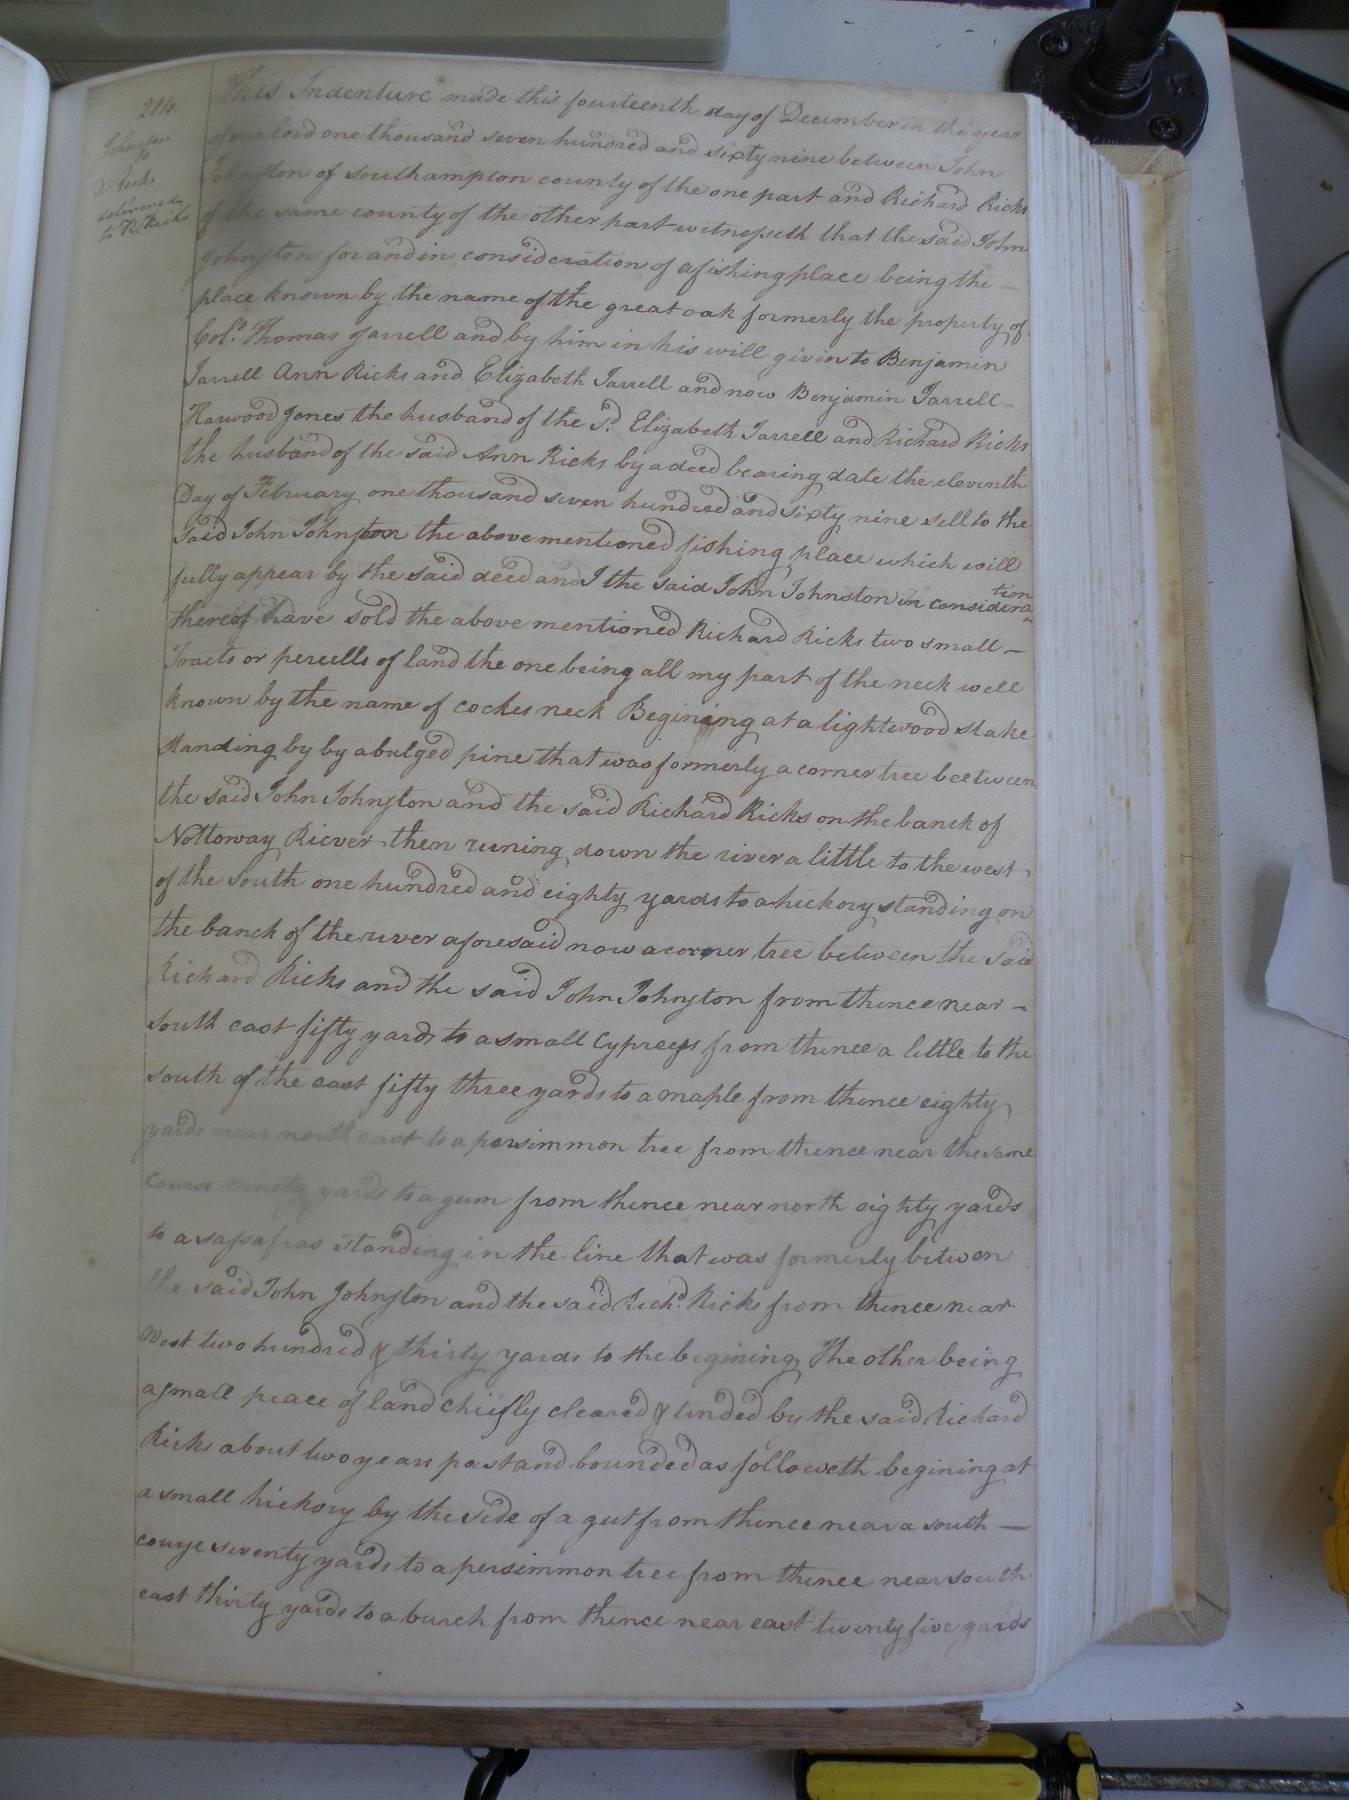 214
Johnston
to
Ricks
delivered
to R Ricks
This Indenture made this fourteenth day of December in the year
of our lord one thousand seven hundred and sixty nine between John
Johnston of southampton county of the one part and Richard Ricks
of the same county of the other part witnesseth that the said John
Johnston for and in consideration of a fishing place being the —
place known by the name of the great oak formerly the property of
Col.º Thomas Jarrell and by him in his will given to Benjamin
Jarrell Ann Ricks and Elizabeth Jarrell and now Benjamin Jarrell —
Harwood Jones the husband of the s.d Elizabeth Jarrell and Richard Ricks
the husband of the said Ann Ricks by a deed bearing date the eleventh
Day of February one thousand seven hundred and sixty nine sell to the
said John Johnston the above mentioned fishing place which will
fully appear by the said deed and I the said John Johnston in considera-
tion
thereof have sold the above mentioned Richard Ricks two small —
Tracts or percells of land the one being all my part of the neck well
known by the name of cockes neck Begining at a lightwood stake
standing by by a bulged pine that was formerly a corner tree beetween
the said John Johnston and the said Richard Ricks on the banck of
Nottoway Riever then runing down the river a little to the west
of the south one hundred and eighty yards to a hickory standing on
the banck of the river aforesaid now a corner tree between the said
Richard Ricks and the said John Johnston from thence near —
south east fifty yards to a small Cypress from thence a little to the
south of the east fifty three yards to a maple from thence eighty
yards near north east to a persimmon tree from thence near the same
Course ninety yards to a gum from thence near north eighty yards
to a sassafras standing in the line that was formerly betwen
the said John Johnston and the said Rich.d Ricks from thence near
West two hundred & thirty yards to the begining The other being
a small peace of land chiefly cleared & tinded by the said Richard
Ricks about two years past and bounded as followeth begining at
a small hickory by the side of a gut from thence near a south —
course seventy yards to a persimmon tree from thence near south
east thirty yards to a burch from thence near east twenty five yards